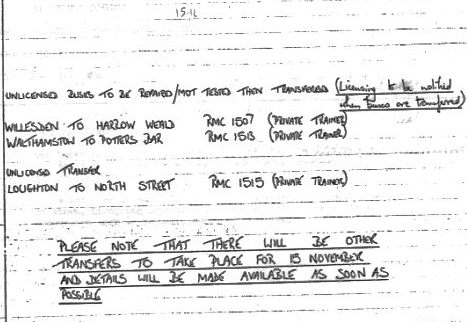 15-11
UNLICENSED BUSES TO BE REPAIRED/MOT TESTED THEN TRANSFERRED (Licensing to be notified
when buses are transferred)
WILLESDEN TO HARROW WEALD RMC 1507 (PRIVATE TRAINER)
WALTHAMSTOW TO POTTERS BAR RMC 1513 (PRIVATE TRAINER)
UNLICENSED TRANSFER
LOUGHTON TO NORTH STREET RMC 1515 (PRIVATE TRAINER)
PLEASE NOTE THAT THERE WILL BE OTHER
TRANSFERS TO TAKE PLACE FOR 15 NOVEMBER
AND DETAILS WILL BE MADE AVAILABLE AS SOON AS
POSSIBLE